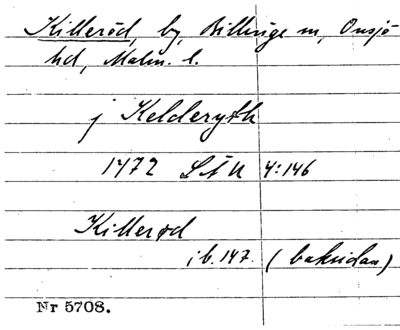 Killeröd, by, Billinge sn, Onsjö
hd, Malm. l.
j Kelderyth
1472 SÅU 4:146
Killerød
ib. 147. (baksidan)
Nr 5708.